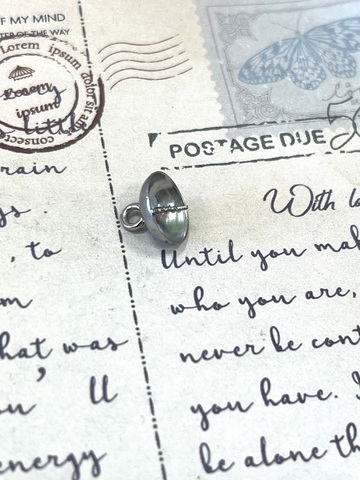 OF MY MIND
TER OF THE WAY
Lorem ipsum dolor sit a
Lorem
ipsum
consec
rain
gs.
, to
m
hat was
ou' ll
energy
POSTAGE DUE 5
With lo
Until you mak
who you are,
never be cont
you have. I
be alone th